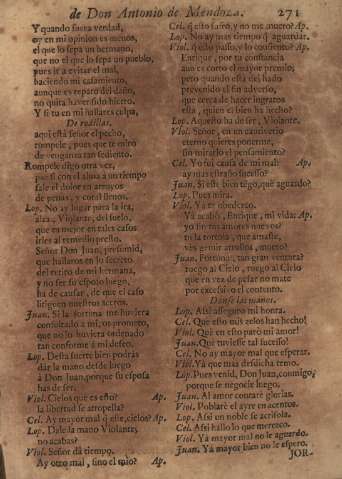 de Don Antonio de Mendoza. 271
Y quando fuera verdad,
oy en mi opinion es menos,
el que lo sepa un hermano,
que no el que lo sepa un pueblo,
pues ir a evitar el mal,
haciendo mi casamiento,
aunque es reparo del daño,
no quita haver sido hierro.
Y si tu en mi hallares culpa,
De rodillas.
aqui està señor el pecho,
rompele, pues que te miro
de venganza tan sediento.
Rompele digo otra vez,
pues con el alma à un tiempo
sale el dolor en arroyos
de penas, y coral lleno.
Lop. No ay lugar para la ira,
alza, Violante, del suelo,
que es mejor en tales casos
irles al remedio presto.
Señor Don Juan, presumid,
que hallaros en lo secreto
del retiro de mi hermana,
y no ser su esposo luego,
ha de causar, de que el caso
lleguen nuestros aceros.
Juan. Si la fortuna me huviera
consultado à mi, os prometo,
que no lo huviera ordenado
tan conforme à mi deseo.
Lop. Desta suerte bien podràs
dàr la mano desde luego
à Don Juan, porque su esposa
has de ser.
Viol. Cielos què es esto? Ap.
la libertad se atropella?
Cel. Ay mayor mal q̃ este, cielos? Ap.
Lop. Dale la mano Violante,
no acabas?
Viol. Señor dà tiempo.
Ay otro mal, sino el mio? Ap.
Cel. q̃ esto sufro, y no me muero? Ap.
Lop. No ay mas tiempo q̃ aguardar.
Viol. q̃ esto passo, y lo consiento? Ap.
Enrique, por tu constancia
aun es corto el mayor premio,
pero quando està del hado
prevenido el fin adverso,
que cerca de hacer ingratos
està, quien el bien ha hecho?
Lop. Aquesto ha de ser, Violante.
Viol. Señor, en un cautiverio
eterno quieres ponerme,
sin mirarlo el pensamiento?
Cel. Yo fui causa de mi mal: Ap.
ay mas estraño sucesso?
Juan. Si este bien tẽgo, què aguardo?
Lop. Pues mira.
Viol. Ya te obedezco.
Ya acabò, Enrique, mi vida: Ap.
Juan. Fortuna, tan gran ventura?
ruego al Cielo, ruego al Cielo
que en vez de pesar no mate
por excessivo el contento.
Danse las manos.
Lop. Assi asseguro mi honra.
Cel. Què esto mis zelos han hecho!
Viol. Què en esto parò mi amor!
Juan. Què tuviesse tal sucesso!
Cel. No ay mayor mal que esperar.
Viol. Yà que mas desdicha temo.
Lop. Pues venid, Don Juan, conmigo,
porque se negocie luego.
Juan. Al amor contarè glorias.
Viol. Poblarè el ayre en acentos.
Lop. Assi un noble se acrisola.
Cel. Assi hallo lo que merezco.
Viol. Yà mayor mal no le aguardo.
Juan. Yà mayor bien no le espero.
JOR-